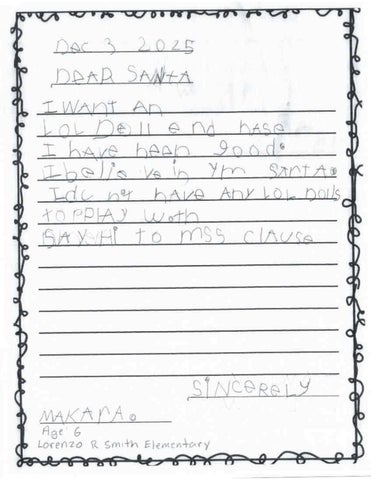 Dec 3 2025
DEAR SANTA
I WANT An
LOL Doll end hase
I have heen good.
I belie ve in ym SANTA.
I do not have Any LOL Dolls
to PPlAY With
SAY Hi to mss clause
SiNCERELY
MAKAPA.
Age 6
Lorenzo R Smith Elementary